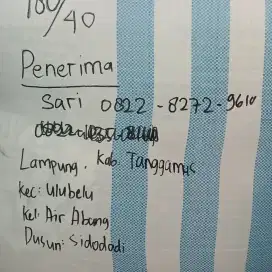 100/40
Penerima
Sari 0822-8272-9610
Lampung. Kab Tanggamus
Kec: Ulubelu
Kel: Air Abang
Dusun: Sidodadi